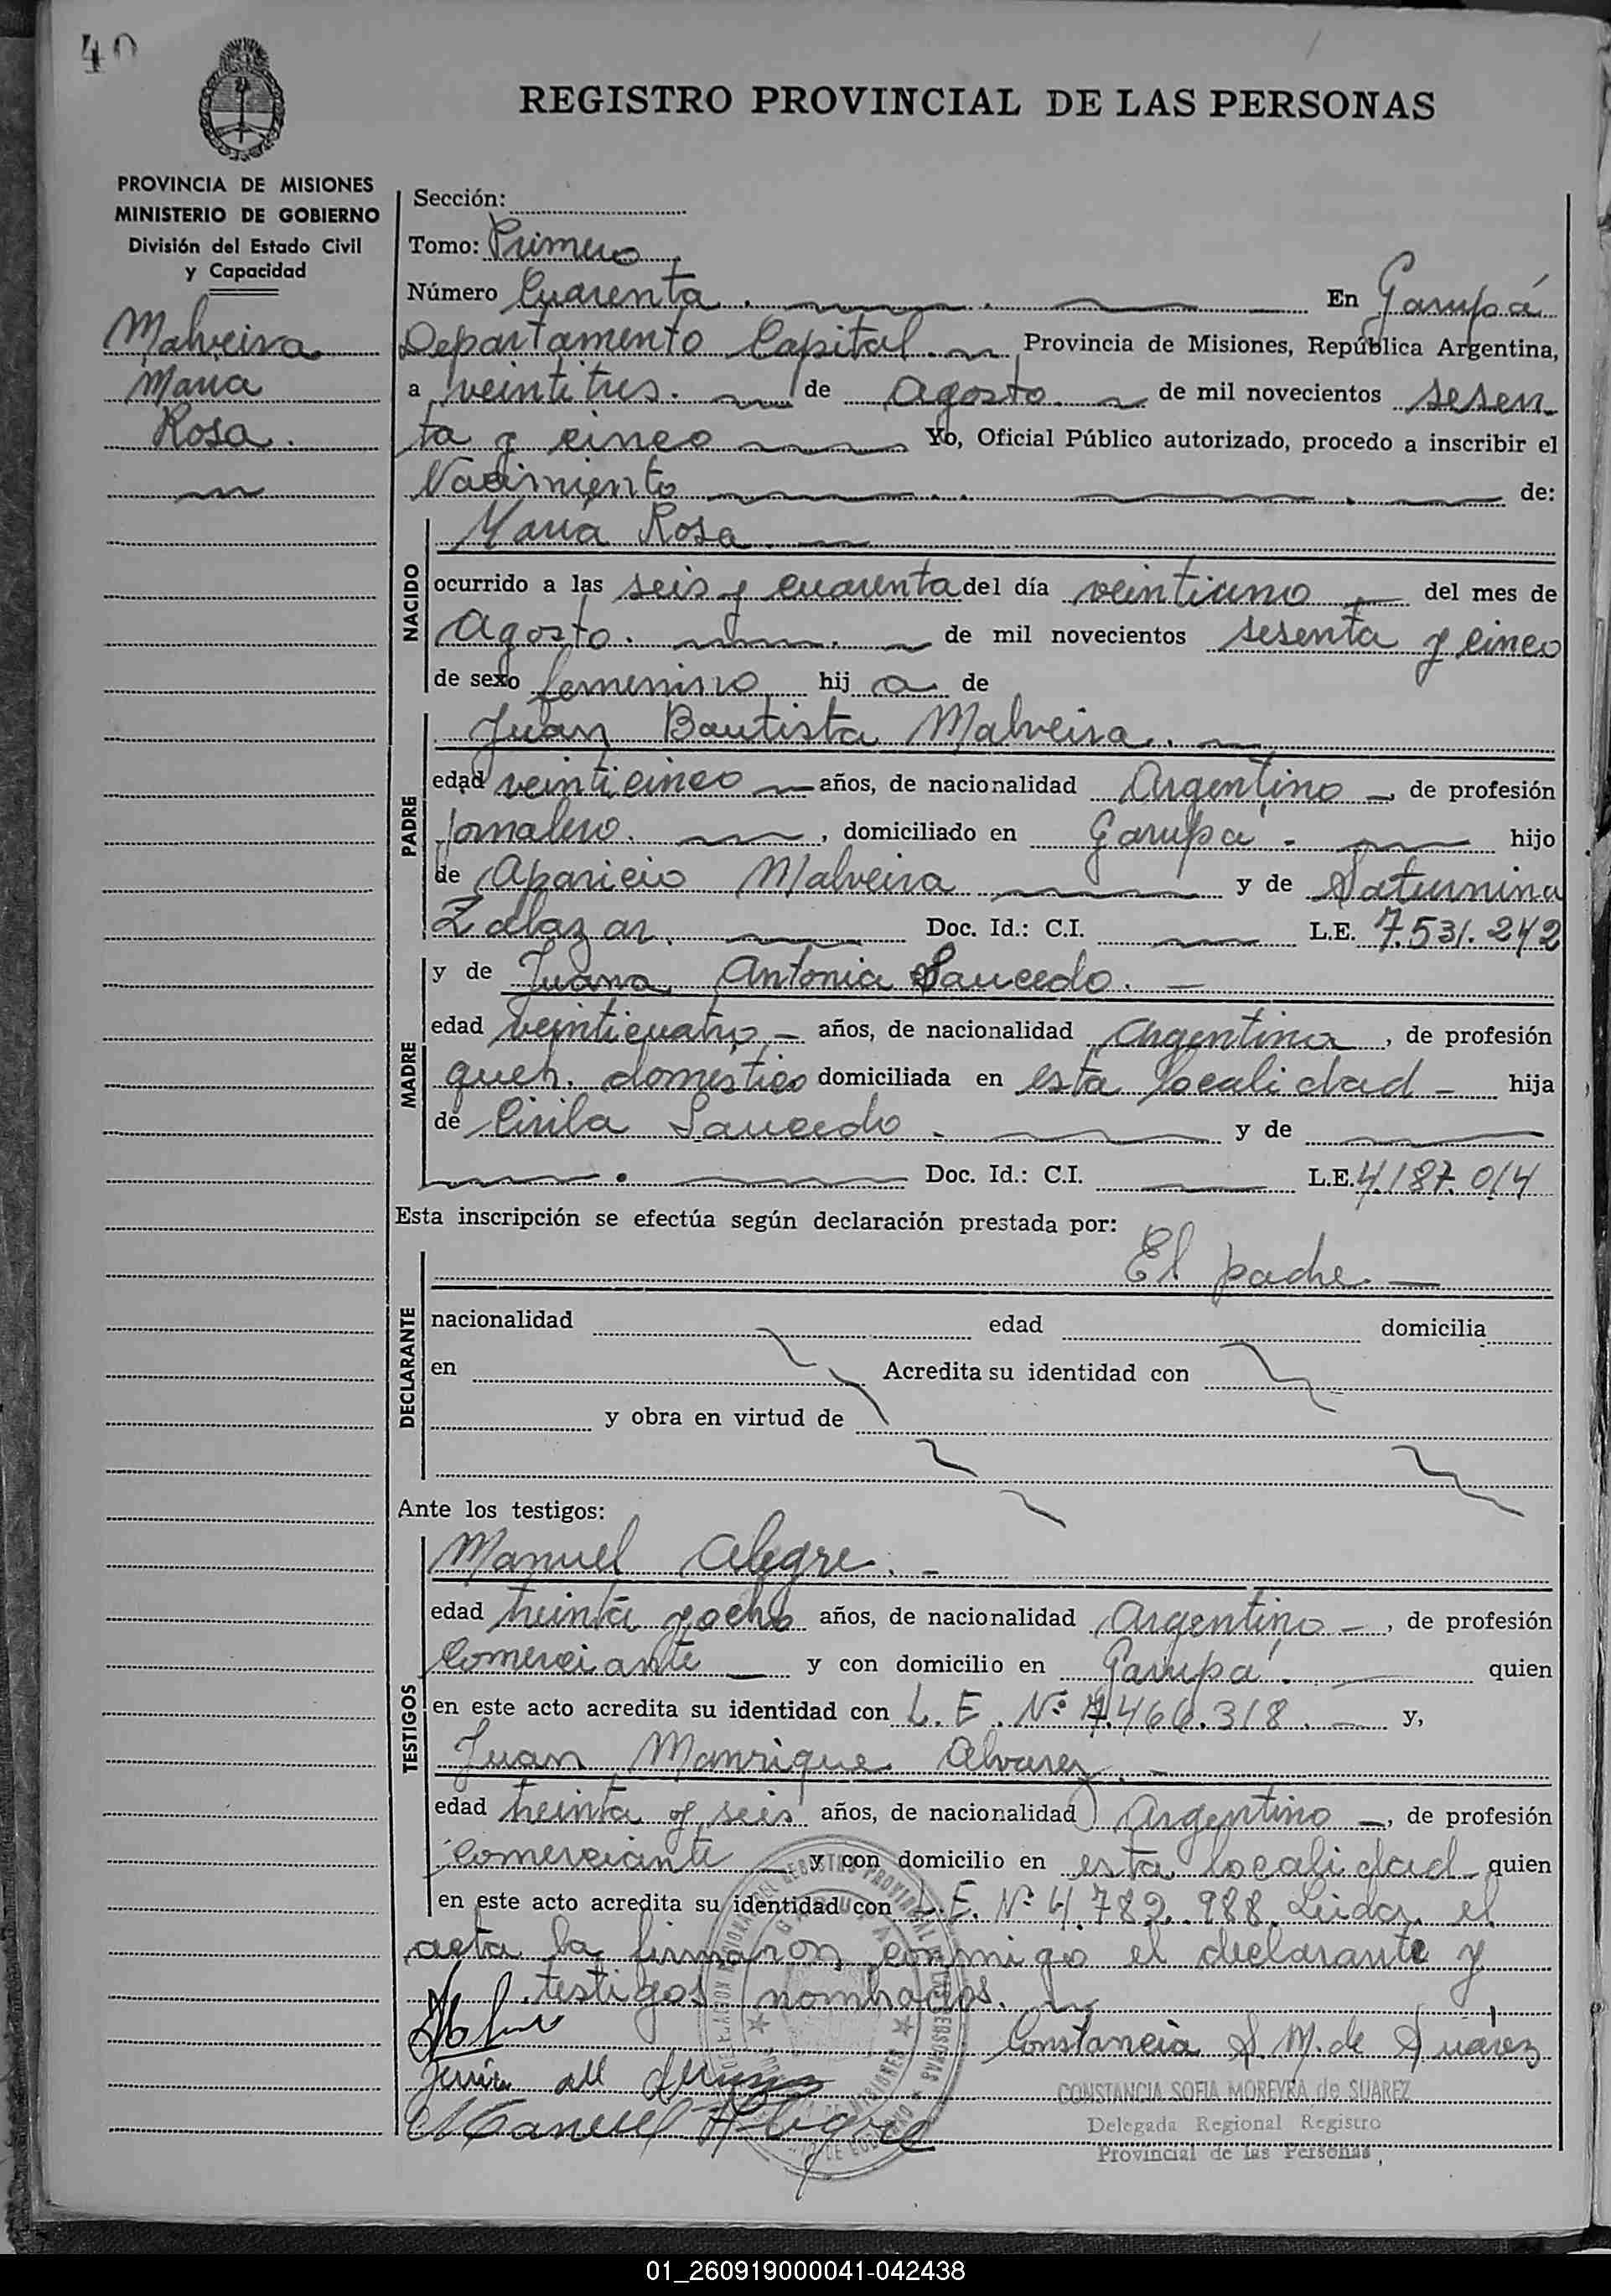 40
REGISTRO PROVINCIAL DE LAS PERSONAS
PROVINCIA DE MISIONES
MINISTERIO DE GOBIERNO
División del Estado Civil
y Capacidad
Malveira
Maria
Rosa.
Sección:
Tomo: Primero
Número Cuarenta. En Garupá
Departamento Capital. Provincia de Misiones, República Argentina,
a veintitres. de Agosto de mil novecientos sesen
ta y cinco Yo, Oficial Público autorizado, procedo a inscribir el
Nacimiento de:
NACIDO
Maria Rosa
ocurrido a las seis y cuarenta del día veintiuno del mes de
Agosto. de mil novecientos sesenta y cinco
de sexo femenino hija de
PADRE
Juan Bautista Malveira.
edad veinticinco años, de nacionalidad Argentino, de profesión
Jornalero. , domiciliado en Garupá. hijo
de Aparicio Malveira y de Saturnina
Zalazar. Doc. Id.: C.I. L.E. 7.531.242
MADRE
y de Juana Antonia Saucedo.
edad veinticuatro años, de nacionalidad Argentina, de profesión
queh. domestico domiciliada en esta localidad hija
de Cirila Saucedo. y de
Doc. Id.: C.I. L.E. 4.187.014
Esta inscripción se efectúa según declaración prestada por:
El padre
DECLARANTE
nacionalidad edad domicilia
en Acredita su identidad con
y obra en virtud de
Ante los testigos:
TESTIGOS
Manuel Alegre.
edad treinta y ocho años, de nacionalidad Argentino, de profesión
Comerciante y con domicilio en Garupá. quien
en este acto acredita su identidad con L.E. Nº 7.466.318. y,
Juan Manrique Alvarez.
edad treinta y seis años, de nacionalidad Argentino, de profesión
Comerciante y con domicilio en esta localidad quien
en este acto acredita su identidad con L.E. Nº 4.782.988. Leida el
acta la firmaron conmigo el declarante y
testigos nombrados.
Constancia S. M. de Suárez
CONSTANCIA SOFIA MOREYRA de SUAREZ
Manuel Alegre
Delegada Regional Registro
Provincial de las Personas
01_260919000041-042438